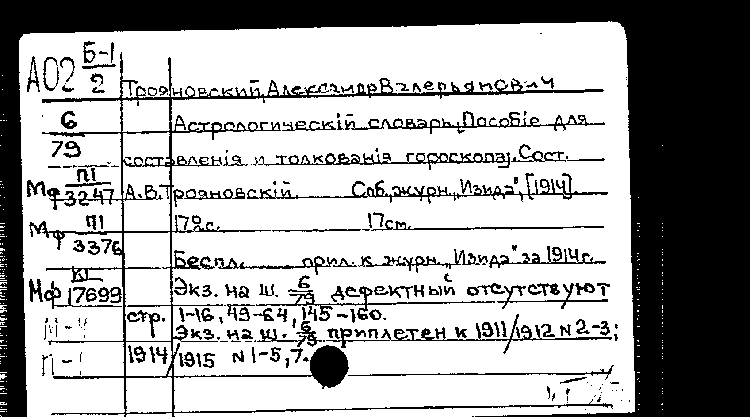 А02 Б-1/2
Трояновский, Александр Валерьянович
6/79
Астрологическій словарь. Пособіе для
составленія и толкованія гороскопа. Сост.
Мф П1/3247 А.В.Трояновскій. Спб, журн. „Изида", [1914].
Мф П1/3376 172с. 17см.
Беспл. прил. к журн. „Изида" за 1914г.
Мф К1/17699 Экз. на ш. 6/79 дефектный отсутствуют
стр. 1-16, 49-64, 145-160.
Экз. на ш. 6/79 приплетен к 1911/1912 N 2-3;
1914/1915 N 1-5, 7.